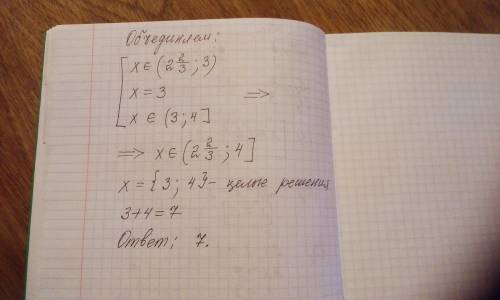 Объединяем:
x ∈ (2 2/3; 3)
x = 3 =>
x ∈ (3; 4]
=> x ∈ (2 2/3; 4]
x = {3; 4} - целые решения
3+4=7
Ответ: 7.